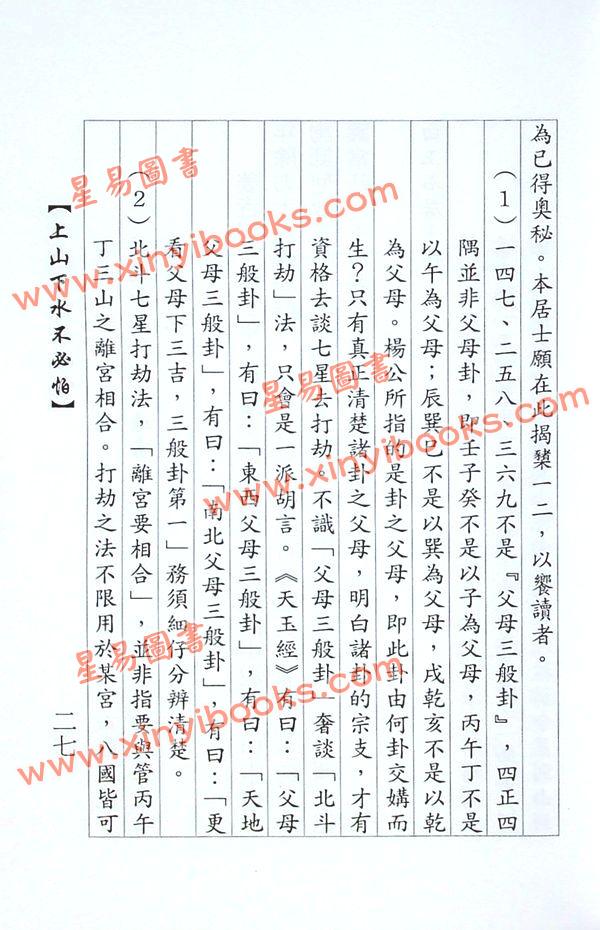 為已得奧秘。本居士願在此揭櫫一二，以饗讀者。
（1）一四七、二五八、三六九不是『父母三般卦』，四正四
隅並非父母卦，即壬子癸不是以子為父母，丙午丁不是
以午為父母；辰巽巳不是以巽為父母，戌乾亥不是以乾
為父母。楊公所指的是卦之父母，即此卦由何卦交媾而
生？只有真正清楚諸卦之父母，明白諸卦的宗支，才有
資格去談七星去打劫。不識「父母三般卦」奢談「北斗
打劫」法，只會是一派胡言。《天玉經》有曰：「父母
三般卦」，有曰：「東西父母三般卦」，有曰：「天地
父母三般卦」，有曰：「南北父母三般卦」，有曰：「更
看父母下三吉，三般卦第一」務須細仔分辨清楚。
（2）北斗七星打劫法，「離宮要相合」，並非指要與管丙午
丁三山之離宮相合。打劫之法不限用於某宮，八國皆可
【上山下水不必怕】
二七
星易圖書
www.xinyibooks.com
星易圖書
www.xinyibooks.com
星易圖書
www.xinyibooks.com